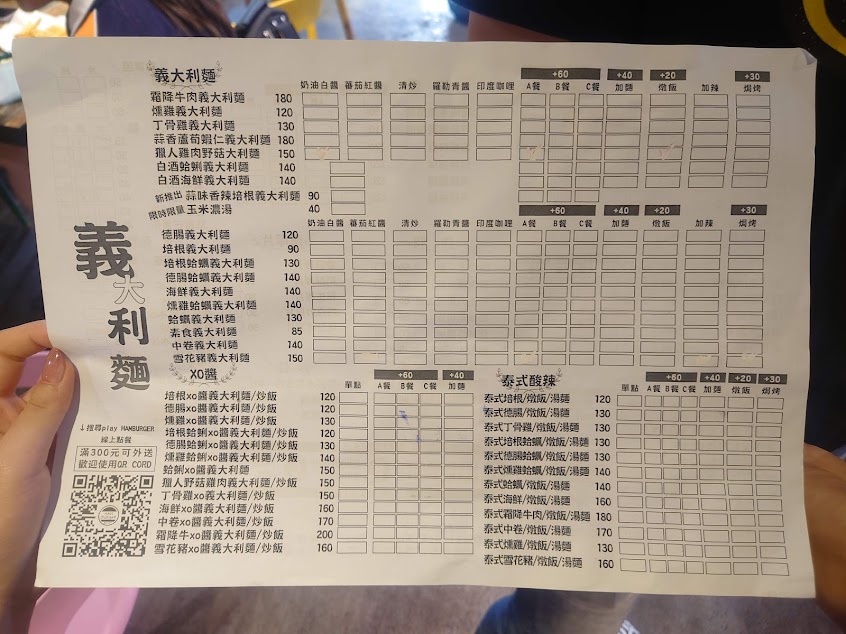 義大利麵
+60 +40 +20 +30
奶油白醬 蕃茄紅醬 清炒 羅勒青醬 印度咖哩 A餐 B餐 C餐 加麵 燉飯 加辣 焗烤
霜降牛肉義大利麵 180
燻雞義大利麵 120
丁骨雞義大利麵 130
蒜香蘆筍蝦仁義大利麵 180
獵人雞肉野菇義大利麵 150
白酒蛤蜊義大利麵 140
白酒海鮮義大利麵 140
新推出 蒜味香辣培根義大利麵 90
限時限量 玉米濃湯 40
+60 +40 +20 +30
奶油白醬 蕃茄紅醬 清炒 羅勒青醬 印度咖哩 A餐 B餐 C餐 加麵 燉飯 加辣 焗烤
德腸義大利麵 120
培根義大利麵 90
培根蛤蠣義大利麵 130
德腸蛤蠣義大利麵 140
海鮮義大利麵 140
燻雞蛤蠣義大利麵 140
蛤蠣義大利麵 130
素食義大利麵 85
中卷義大利麵 140
雪花豬義大利麵 150
義大利麵
XO醬
+60 +40
單點 A餐 B餐 C餐 加麵
培根xo醬義大利麵/炒飯 120
德腸xo醬義大利麵/炒飯 120
燻雞xo醬義大利麵/炒飯 130
培根蛤蜊xo醬義大利麵/炒飯 120
德腸蛤蜊xo醬義大利麵/炒飯 130
燻雞蛤蜊xo醬義大利麵/炒飯 140
蛤蜊xo醬義大利麵 150
獵人野菇雞肉義大利麵/炒飯 150
丁骨雞xo義大利麵/炒飯 150
海鮮xo醬義大利麵/炒飯 160
中卷xo醬義大利麵/炒飯 170
霜降牛xo醬義大利麵/炒飯 200
雪花豬xo醬義大利麵/炒飯 160
泰式酸辣
+60 +40 +20 +30
單點 A餐 B餐 C餐 加麵 燉飯 焗烤
泰式培根/燉飯/湯麵 120
泰式德腸/燉飯/湯麵 130
泰式丁骨雞/燉飯/湯麵 140
泰式培根蛤蠣/燉飯/湯麵 130
泰式德腸蛤蠣/燉飯/湯麵 130
泰式燻雞蛤蠣/燉飯/湯麵 140
泰式蛤蠣/燉飯/湯麵 150
泰式海鮮/燉飯/湯麵 160
泰式霜降牛肉/燉飯/湯麵 180
泰式中卷/燉飯/湯麵 170
泰式燻雞/燉飯/湯麵 130
泰式雪花豬/燉飯/湯麵 160
↓搜尋play HAMBURGER
線上點餐
滿300元可外送
歡迎使用QR CORD